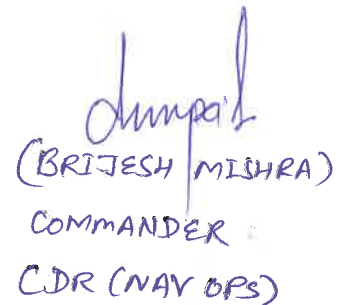 (BRIJESH MISHRA)
COMMANDER
CDR (NAV OPS)